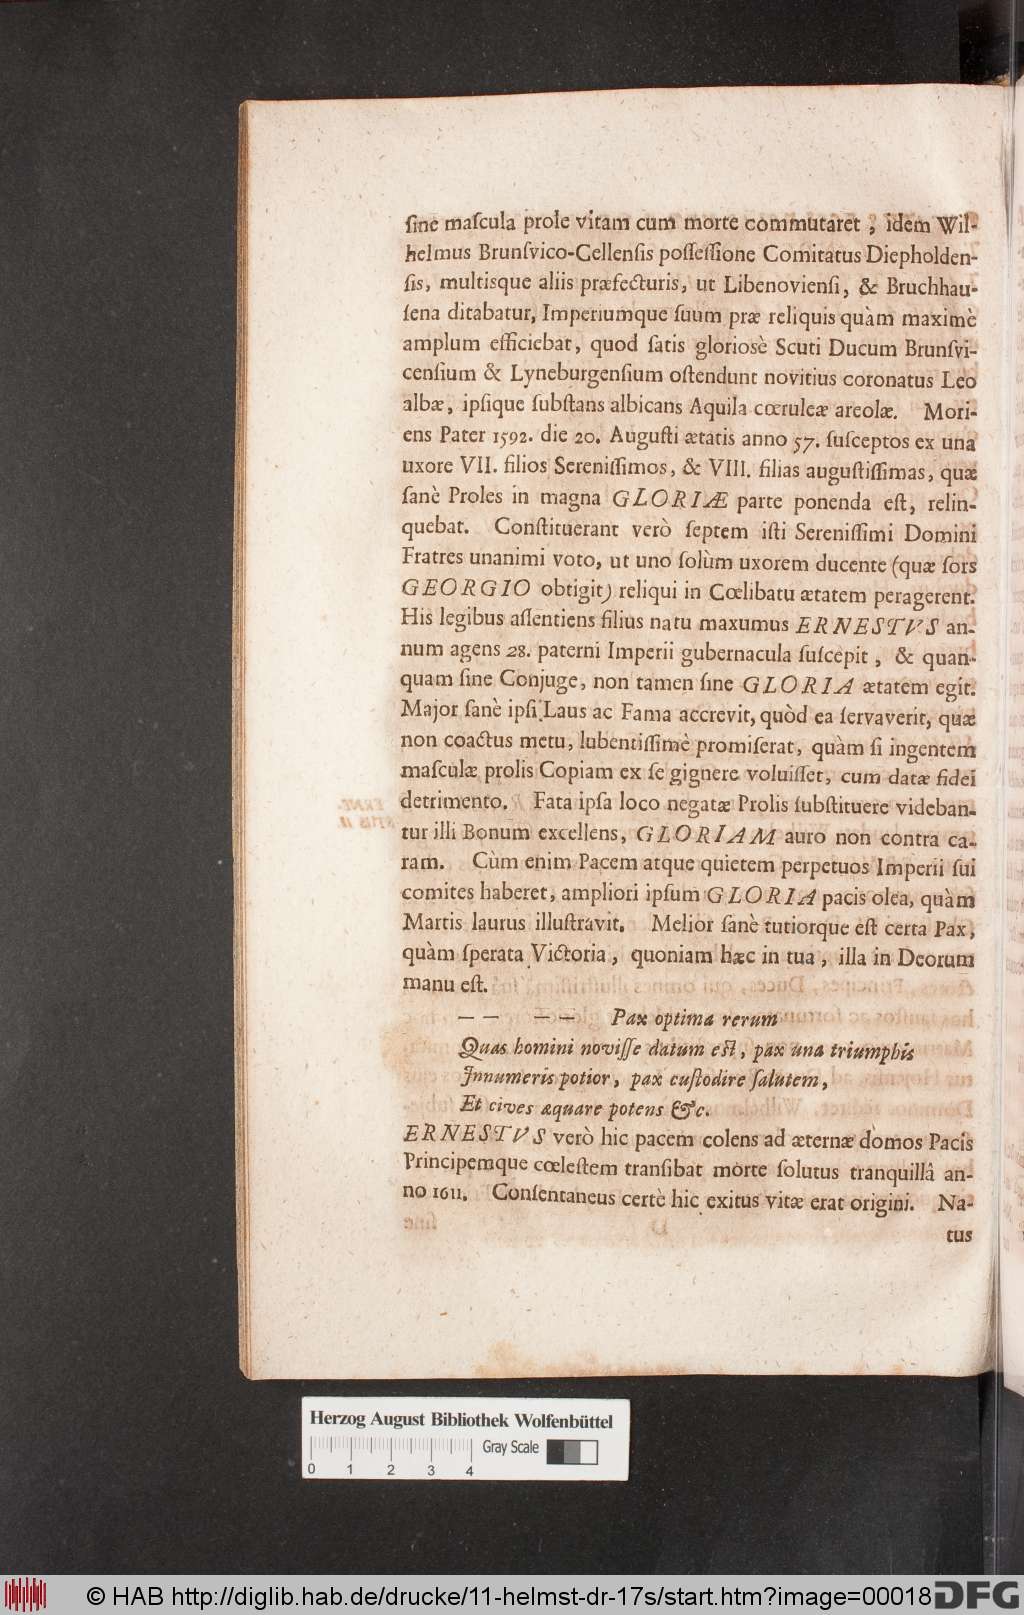 ſine maſcula prole vitam cum morte commutaret , idem Wil-
helmus Brunſvico-Cellenſis poſſeſſione Comitatus Diepholden-
ſis, multisque aliis præfecturis, ut Libenovienſi, & Bruchhau-
ſena ditabatur, Imperiumque ſuum præ reliquis quàm maximè
amplum efficiebat, quod ſatis gloriosè Scuti Ducum Brunſvi-
cenſium & Lyneburgenſium oſtendunt novitius coronatus Leo
albæ, ipſique ſubſtans albicans Aquila cœruleæ areolæ. Mori-
ens Pater 1592. die 20. Auguſti ætatis anno 57. ſuſceptos ex una
uxore VII. filios Sereniſſimos, & VIII. filias auguſtiſſimas, quæ
ſanè Proles in magna GLORIÆ parte ponenda eſt, relin-
quebat. Conſtituerant verò ſeptem iſti Sereniſſimi Domini
Fratres unanimi voto, ut uno ſolùm uxorem ducente (quæ ſors
GEORGIO obtigit) reliqui in Cœlibatu ætatem peragerent.
His legibus aſſentiens filius natu maxumus ERNESTVS an-
num agens 28. paterni Imperii gubernacula ſuſcepit , & quan-
quam ſine Conjuge, non tamen ſine GLORIA ætatem egit.
Major ſanè ipſi Laus ac Fama accrevit, quòd ea ſervaverit, quæ
non coactus metu, lubentiſſimè promiſerat, quàm ſi ingentem
maſculæ prolis Copiam ex ſe gignere voluiſſet, cum datæ fidei
detrimento. Fata ipſa loco negatæ Prolis ſubſtituere videban-
tur illi Bonum excellens, GLORIAM auro non contra ca-
ram. Cùm enim Pacem atque quietem perpetuos Imperii ſui
comites haberet, ampliori ipſum GLORIA pacis olea, quàm
Martis laurus illuſtravit. Melior ſanè tutiorque eſt certa Pax,
quàm ſperata Victoria , quoniam hæc in tua , illa in Deorum
manu eſt.
— — — — Pax optima rerum
Quas homini noviſſe datum eſt, pax una triumphis
Innumeris potior, pax cuſtodire ſalutem,
Et cives æquare potens &c.
ERNESTVS verò hic pacem colens ad æternæ domos Pacis
Principemque cœleſtem tranſibat morte ſolutus tranquillâ an-
no 1611. Conſentaneus certè hic exitus vitæ erat origini. Na-
tus
Herzog August Bibliothek Wolfenbüttel
Gray Scale
0 1 2 3 4
© HAB http://diglib.hab.de/drucke/11-helmst-dr-17s/start.htm?image=00018
DFG